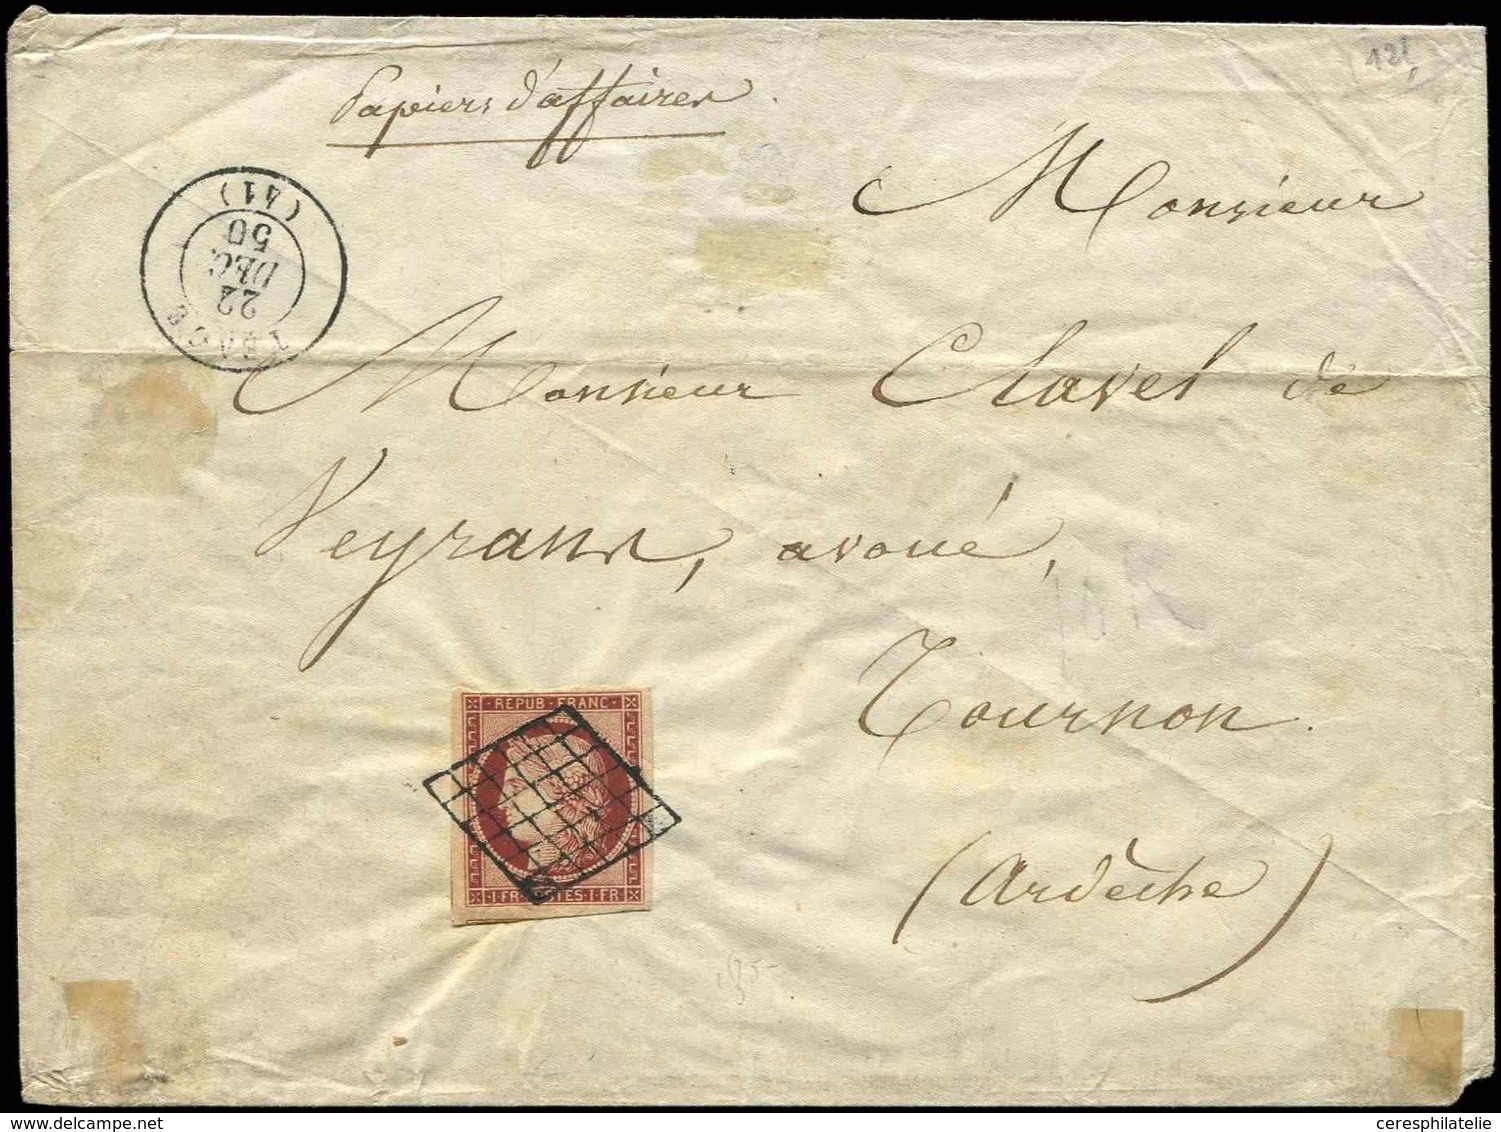 121
Papiers d'affaires
Monsieur
(41)
22
DEC.
50
Monsieur Clavel de
Veyrans, avoué,
Tournon.
(Ardèche)
REPUB · FRANC ·
· 1 · FR · POSTES · 1 · FR ·
ceresphilatelie